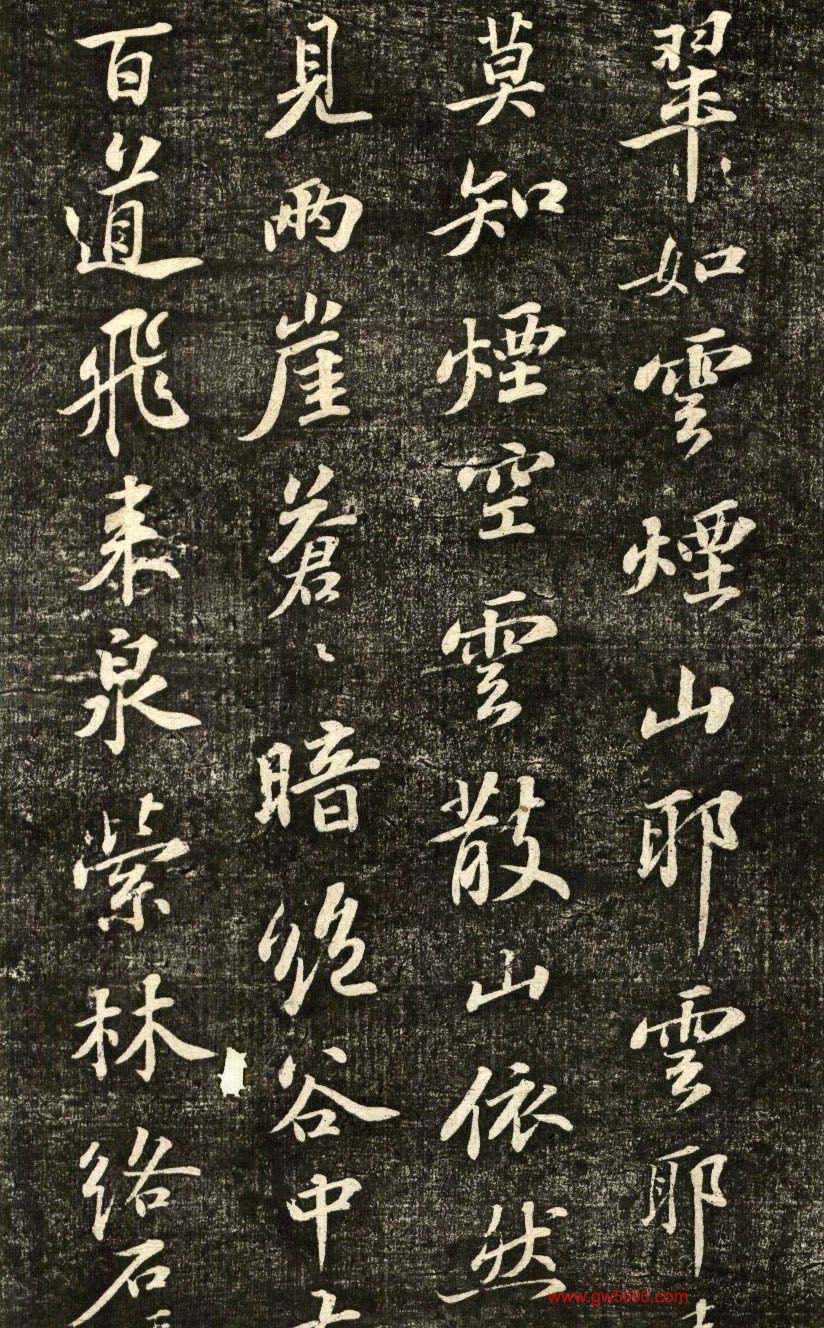 翠如雲煙山耶雲耶
莫知煙空雲散山依然
見兩崖蒼〻暗絕谷中
百道飛來泉縈林絡石
www.gw5000.com